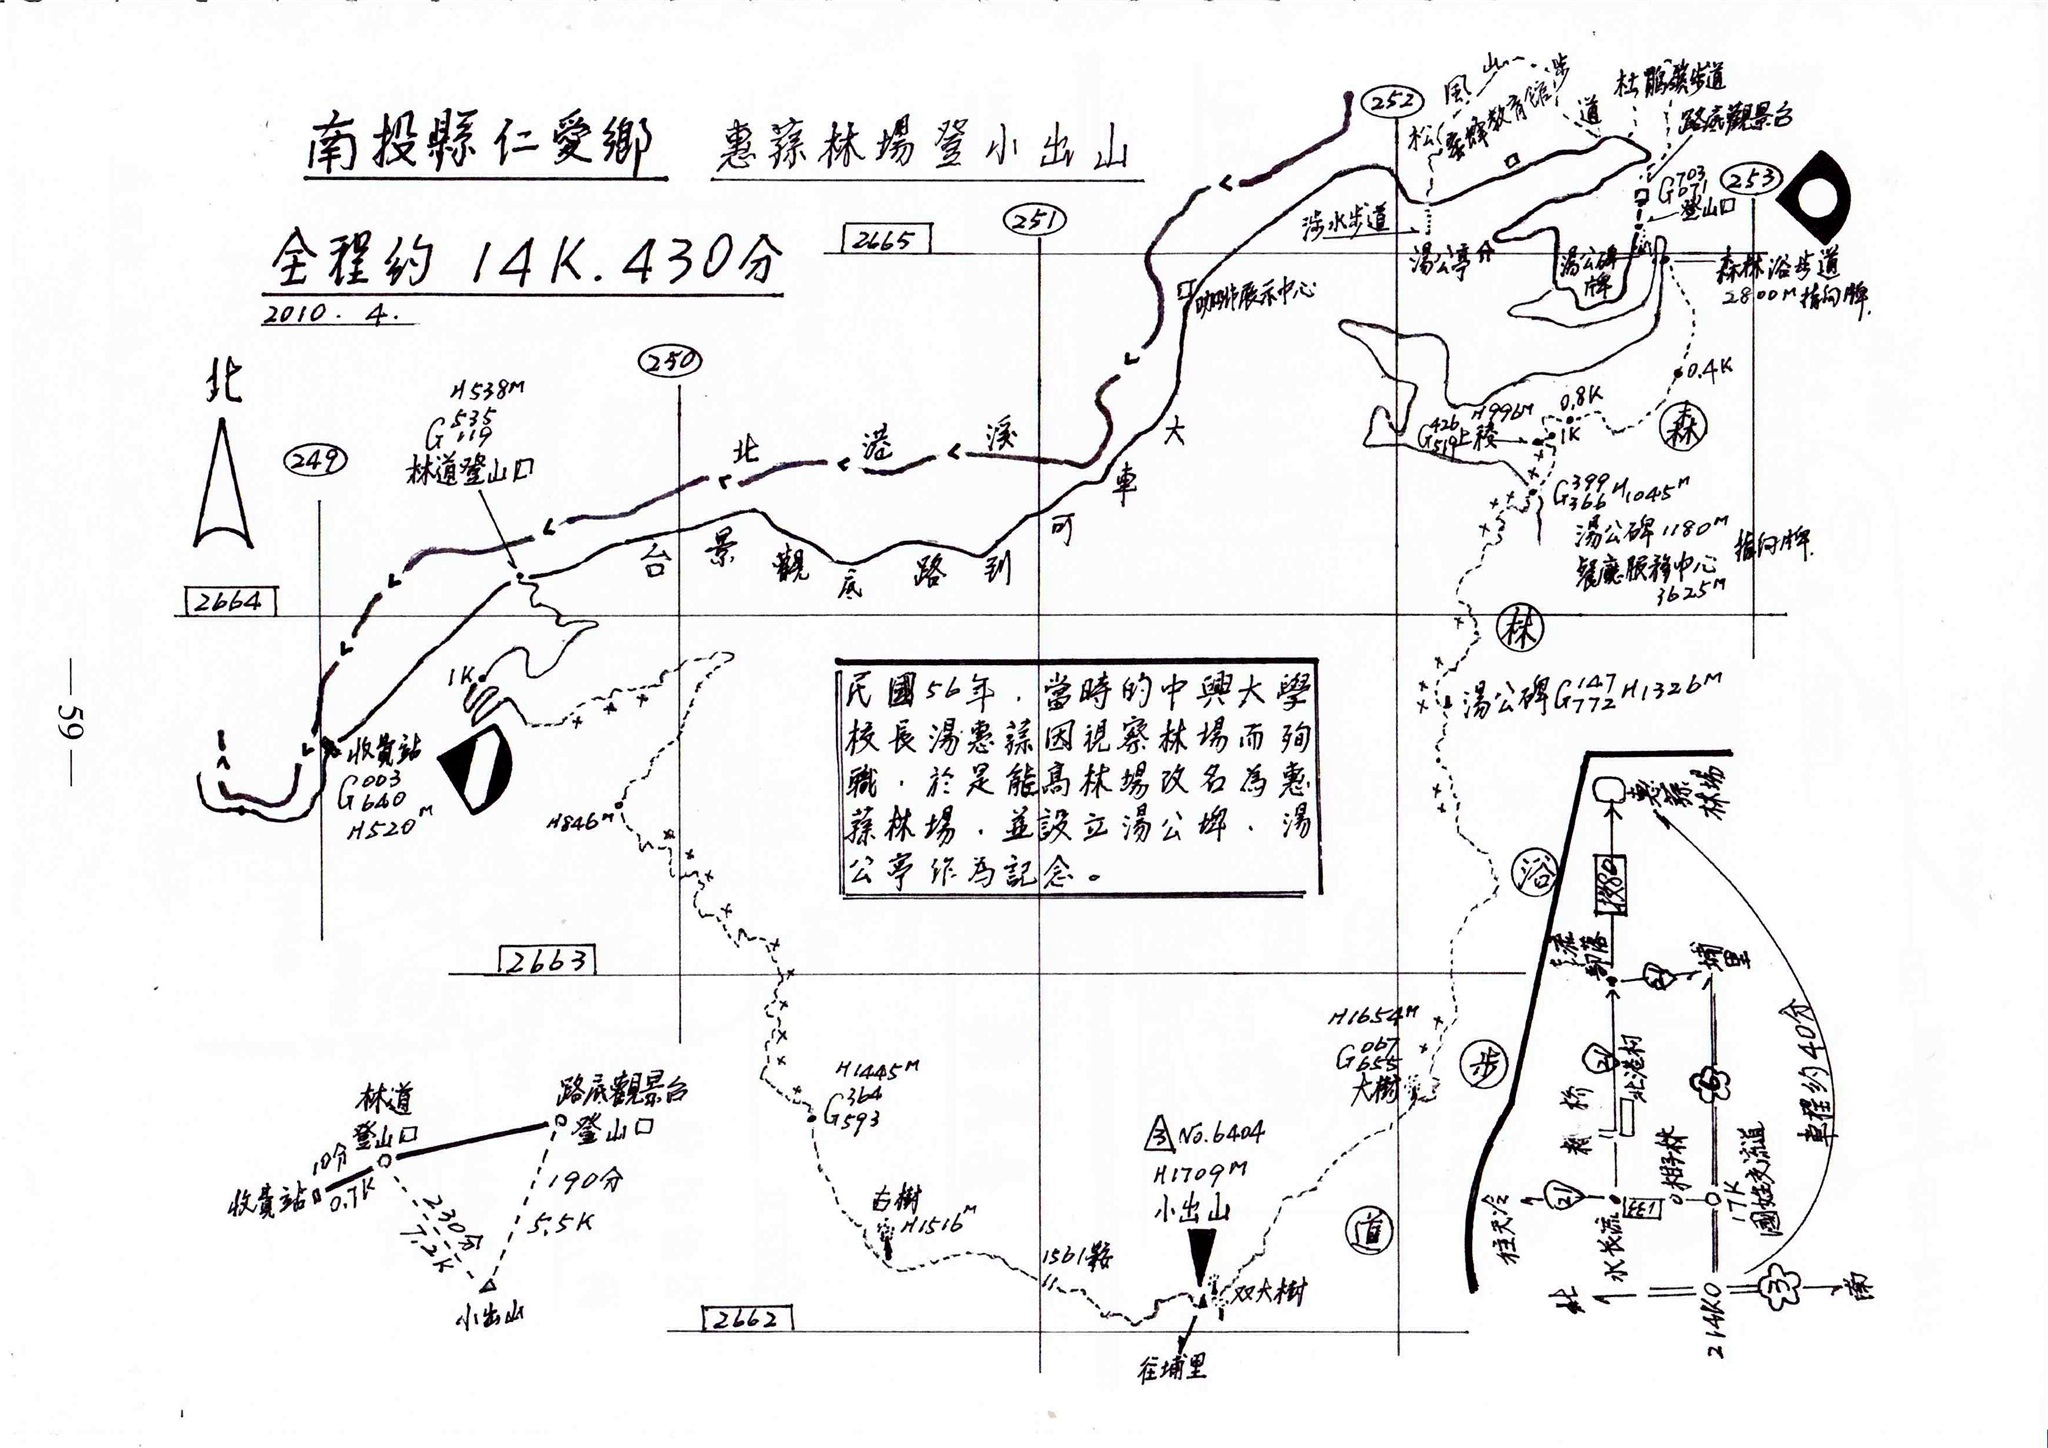 南投縣仁愛鄉 惠蓀林場登小出山
全程約 14K.430分
2010.4.
北
249
250
251
252
253
2665
2664
2663
2662
松風山步道
教育館
杜鵑嶺步道
路底觀景台
G703
071
登山口
涉水步道
湯公亭
湯公碑
牌
森林浴步道
2800M指向牌
咖啡展示中心
0.4K
0.8K
1K
H996M
G426
519
上稜
G399
366
H1045M
湯公碑1180M
餐廳服務中心
3625M
指向牌
H538M
G535
119
林道登山口
北港溪
大車可到路底觀景台
1K
收費站
G003
640
H520M
H846M
民國56年，當時的中興大學
校長湯惠蓀因視察林場而殉
職，於是能高林場改名為惠
蓀林場，並設立湯公埤，湯
公亭作為記念。
森林浴步道
湯公碑G147
772
H1326M
H1654M
G067
655
大樹
H1445M
G364
593
白樹
H1516M
1561鞍
No.6404
H1709M
小出山
双大樹
往埔里
林道
登山口
路底觀景台
登山口
10分
0.7K
收費站
230分
7.2K
190分
5.5K
小出山
惠蓀
林場
投80
部落
21
埔里
21
北港村
6
柑子林
17K
國姓交流道
133
水長流
21
往天冷
北
214K0
3
南
車程約40分
—59—